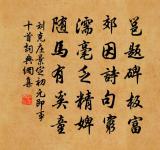 邕題碑板富
郊因詩句窮
濡毫乏精婢
隨馬有奚童
刘克庄景定初元即事
十首詞典網集